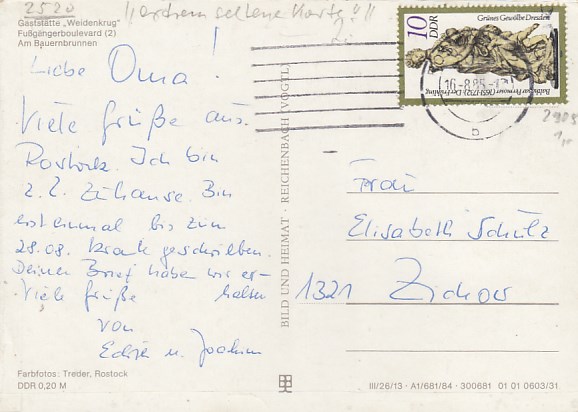 2520
"extrem seltene Karte!"
Gaststätte „Weidenkrug"
Fußgängerboulevard (2)
Am Bauernbrunnen
Liebe Oma!
Viele Grüße aus
Rostock. Ich bin
z. Z. Zuhause. Bin
erst einmal bis zum
28.08. krank geschrieben.
Deinen Brief haben wir er-
halten
Viele Grüße
von
u. Jochen
Farbfotos: Treder, Rostock
DDR 0,20 M
BILD UND HEIMAT · REICHENBACH (VOGTL)
10
DDR
Grünes Gewölbe Dresden
Balthasar Permoser (1651-1732): Der Frühling
16.-8.85
b
Frau
Elisabeth Schulz
1321 Zichow
III/26/13 · A1/681/84 · 300681 01 01 0603/31